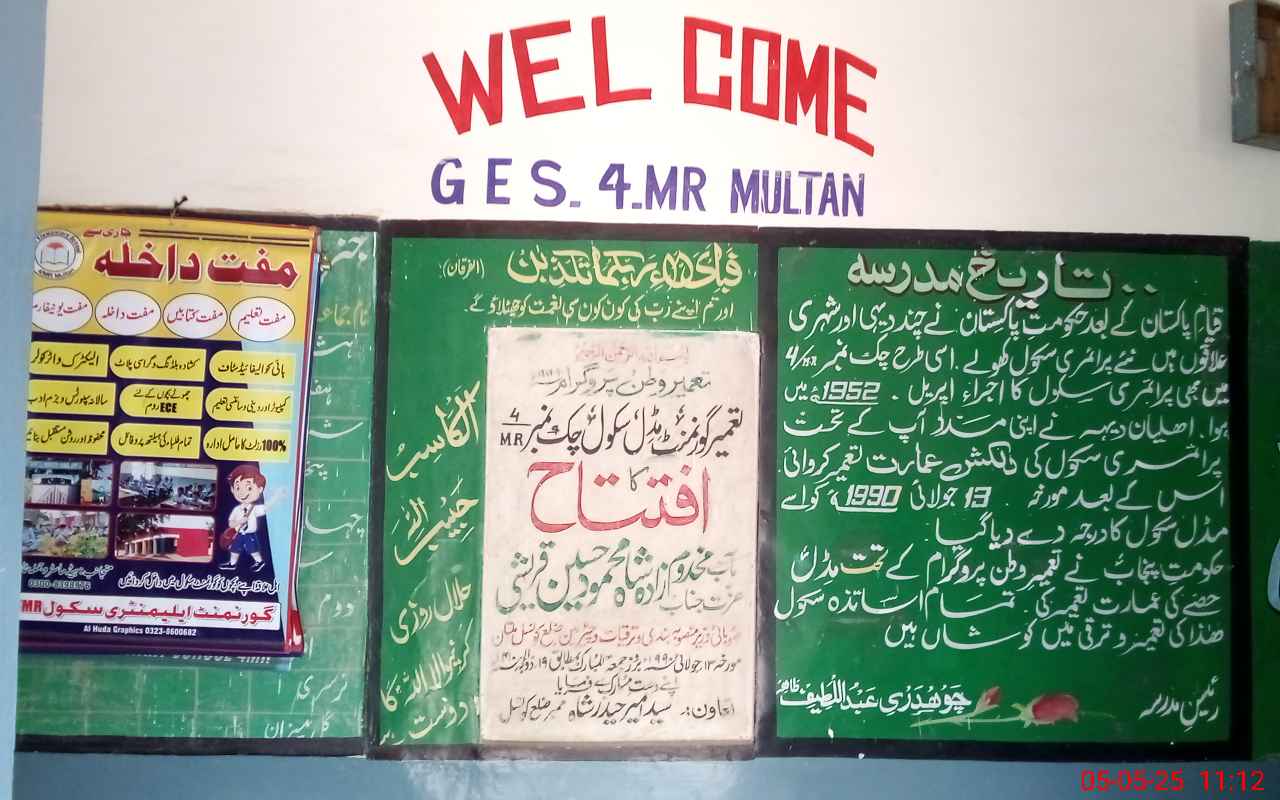 WELCOME
G E S. 4.MR MULTAN
جاری سے
مفت داخلہ
مفت تعلیم
مفت کتابیں
مفت داخلہ
مفت یونیفارم
ہائی کوالیفائیڈ سٹاف
کشادہ بلڈنگ و گراسی پلاٹ
الیکٹرک واٹر کولر
کمپیوٹر اور دینی و سائنسی تعلیم
چھوٹے بچوں کے لئے ECE روم
سالانہ سپورٹس و بزم ادب
100% رزلٹ کا حامل ادارہ
تمام طلباء کی ہیلتھ پروفائل
محفوظ اور روشن مستقبل
0300-6398576
گورنمنٹ ایلیمنٹری سکول 4MR
Al Huda Graphics 0323-8600682
دوم
نرسری
فَبِأَيِّ آلَاءِ رَبِّكُمَا تُكَذِّبَانِ (الفرقان)
اور تم اپنے رب کی کون کون سی نعمت کو جھٹلاؤ گے
الکاسب
حبیب اللہ
حلال روزی
کرنیوالا اللہ کا
دوست ہے
بسم اللہ الرحمن الرحیم
تعمیر وطن پروگرام
تعمیر گورنمنٹ مڈل سکول چک نمبر 4/MR
کا
افتتاح
عزت جناب مخدوم زادہ شاہ محمود حسین قریشی
صوبائی وزیر منصوبہ بندی و ترقیات و چیئرمین ضلع کونسل ملتان
مورخہ ۱۳ جولائی ۱۹۹۰ء بروز جمعۃ المبارک بمطابق ۱۹ ذوالحجہ
اپنے دست مبارک سے فرمایا
تعاون:۔ سید امیر حیدر شاہ ممبر ضلع کونسل
تاریخ مدرسہ
قیام پاکستان کے بعد حکومت پاکستان نے چند دیہی اور شہری
علاقوں میں نئے پرائمری سکول کھولے۔ اسی طرح چک نمبر 4/MR
میں بھی پرائمری سکول کا اجراء اپریل 1952ء میں
ہوا۔ اھلیان دیہہ نے اپنی مدد آپ کے تحت
پرائمری سکول کی دلکش عمارت تعمیر کروائی
اس کے بعد مورخہ 13 جولائی 1990ء کو اسے
مڈل سکول کا درجہ دے دیا گیا
حکومت پنجاب نے تعمیر وطن پروگرام کے تحت مڈل
حصے کی عمارت تعمیر کی۔ تمام اساتذہ سکول
ھذا کی تعمیر و ترقی میں کوشاں ہیں
رئیس مدرسہ چوھدری عبداللطیف طاھر
05-05-25 11:12